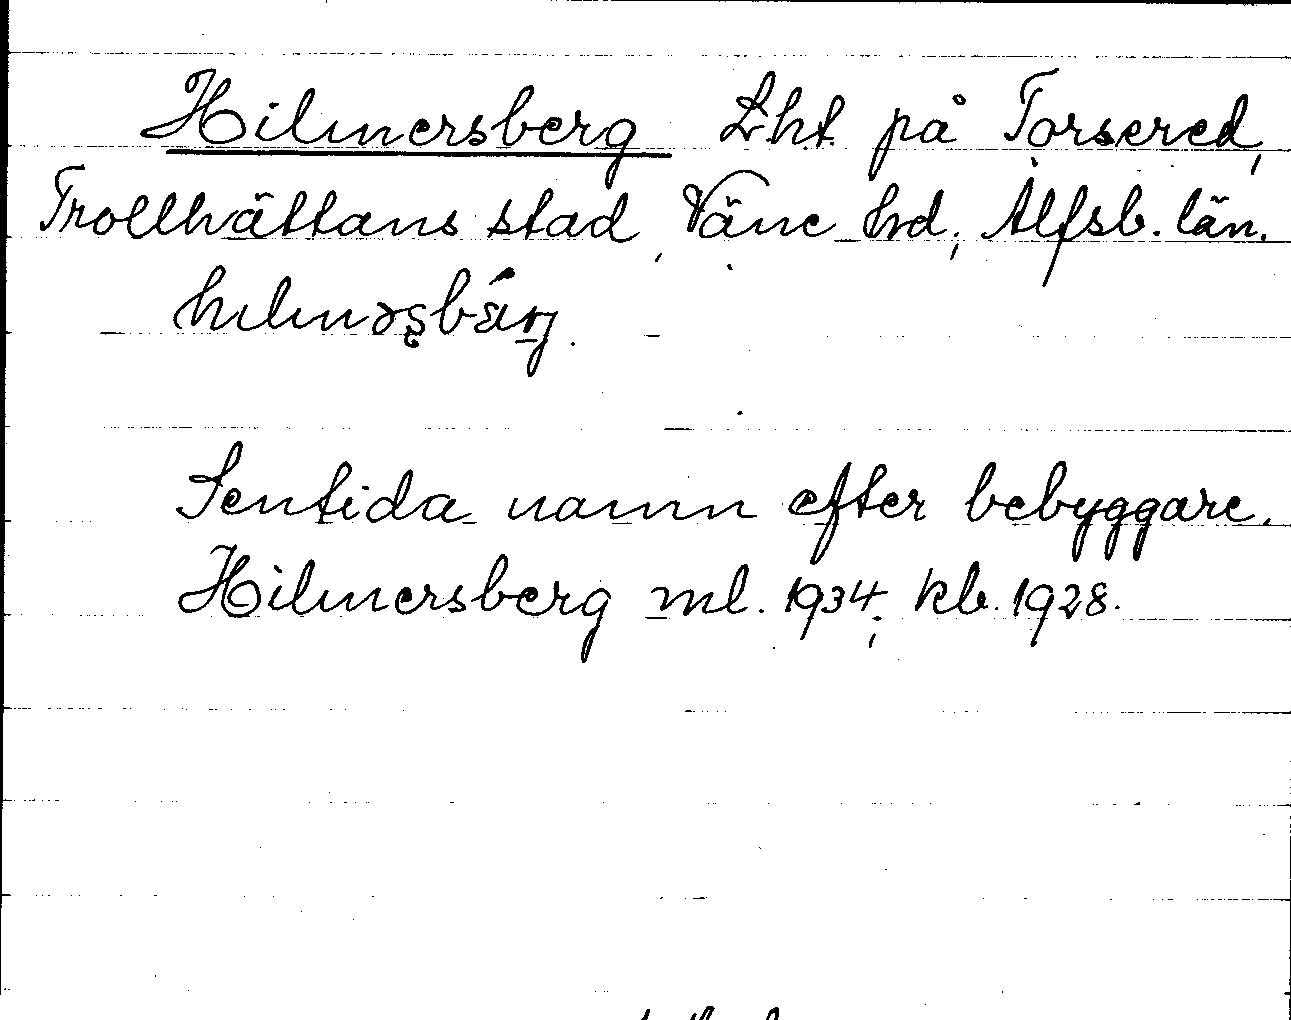 Hilmersberg Lht på Torsered,
Trollhättans stad, Väne hd, Älfsb. län.
Sentida namn efter bebyggare.
Hilmersberg ml. 1934; kb. 1928.